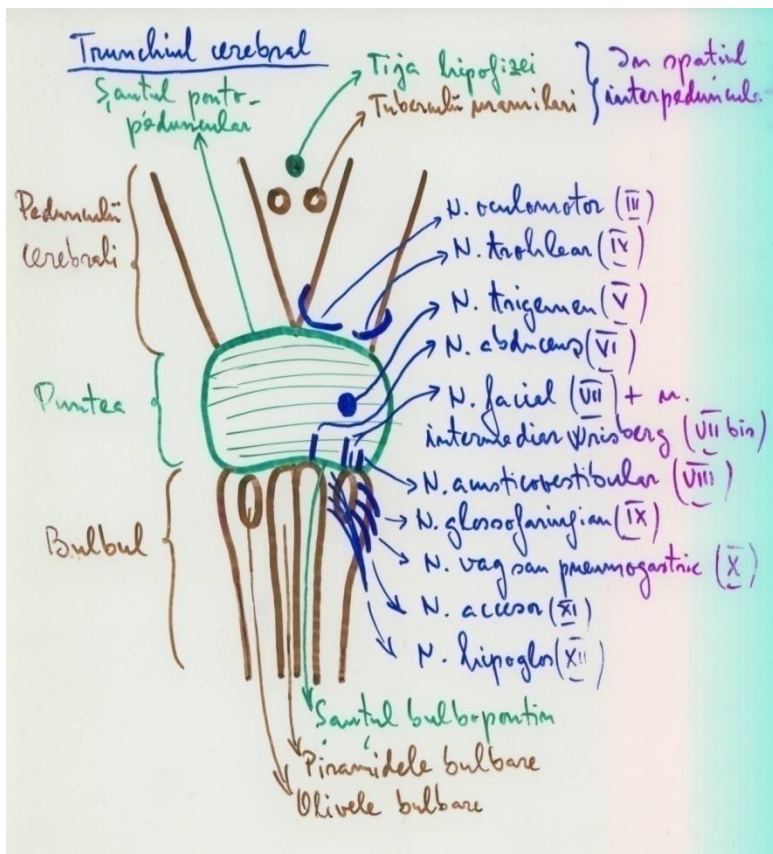 Trunchiul cerebral
Șanțul ponto-
peduncular
Tija hipofizei
Tuberculii mamilari
În spațiul
interpeduncular
Pedunculii
cerebrali
N. oculomotor (III)
N. trohlear (IV)
N. trigemen (V)
N. abducens (VI)
N. facial (VII) + n.
intermediar Wrisberg (VII bis)
N. acusticovestibular (VIII)
N. glosofaringian (IX)
N. vag sau pneumogastric (X)
N. accesor (XI)
N. hipoglos (XII)
Puntea
Bulbul
Șanțul bulbopontin
Piramidele bulbare
Olivele bulbare